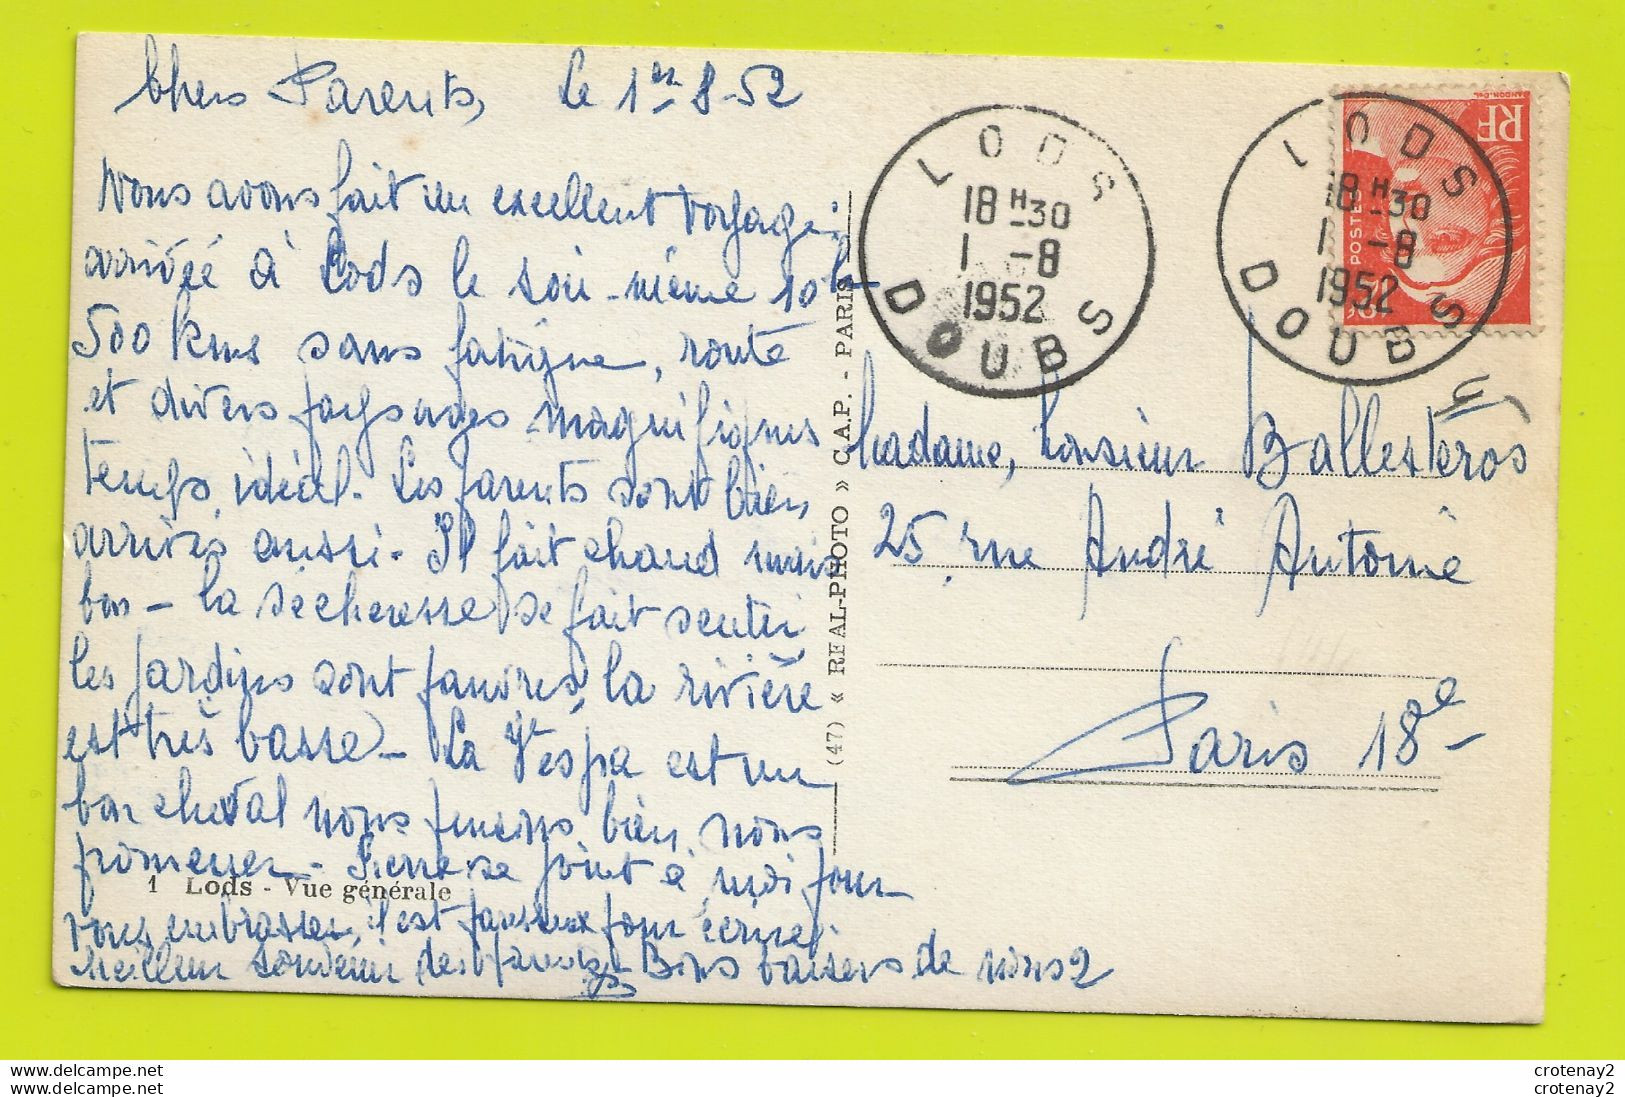 Chers Parents, Le 1er 8-52
Nous avons fait un excellent voyage
arrivée à Lods le soir-même 10h-
500 kms sans fatigue, route
et divers paysages magnifiques
temps idéal. Les parents sont bien
arrivés aussi. Il fait chaud mais
bon - La sécheresse se fait sentir
les jardins sont pauvres, la rivière
est très basse - La Vespa est un
bon cheval nous pensons bien nous
promener - Pierre se joint à moi pour
vous embrasser, il est paresseux pour écrire
Meilleur souvenir des Bons baisers de nous 2
1 Lods - Vue générale
(47) « REAL-PHOTO » C.A.P. - PARIS
LODS
18H-30
1 -8
1952
DOUBS
LODS
18H-30
1 -8
1952
DOUBS
RF
POSTES
GANDON-DEL.
Madame, Monsieur Ballesteros
25, rue André Antoine
Paris 18e -
crotenay2
crotenay2
www.delcampe.net
www.delcampe.net